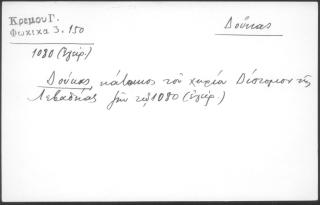 Κρεμου Γ.
Φωκικα 3. 150
Δούκας
1080 (Ἐγκρ.)
Δούκας, κάτοικος τοῦ χωρίου Δίστομον τῆς
Λεβαδείας ζῶν τῷ 1080 (Ἐγκρ.)